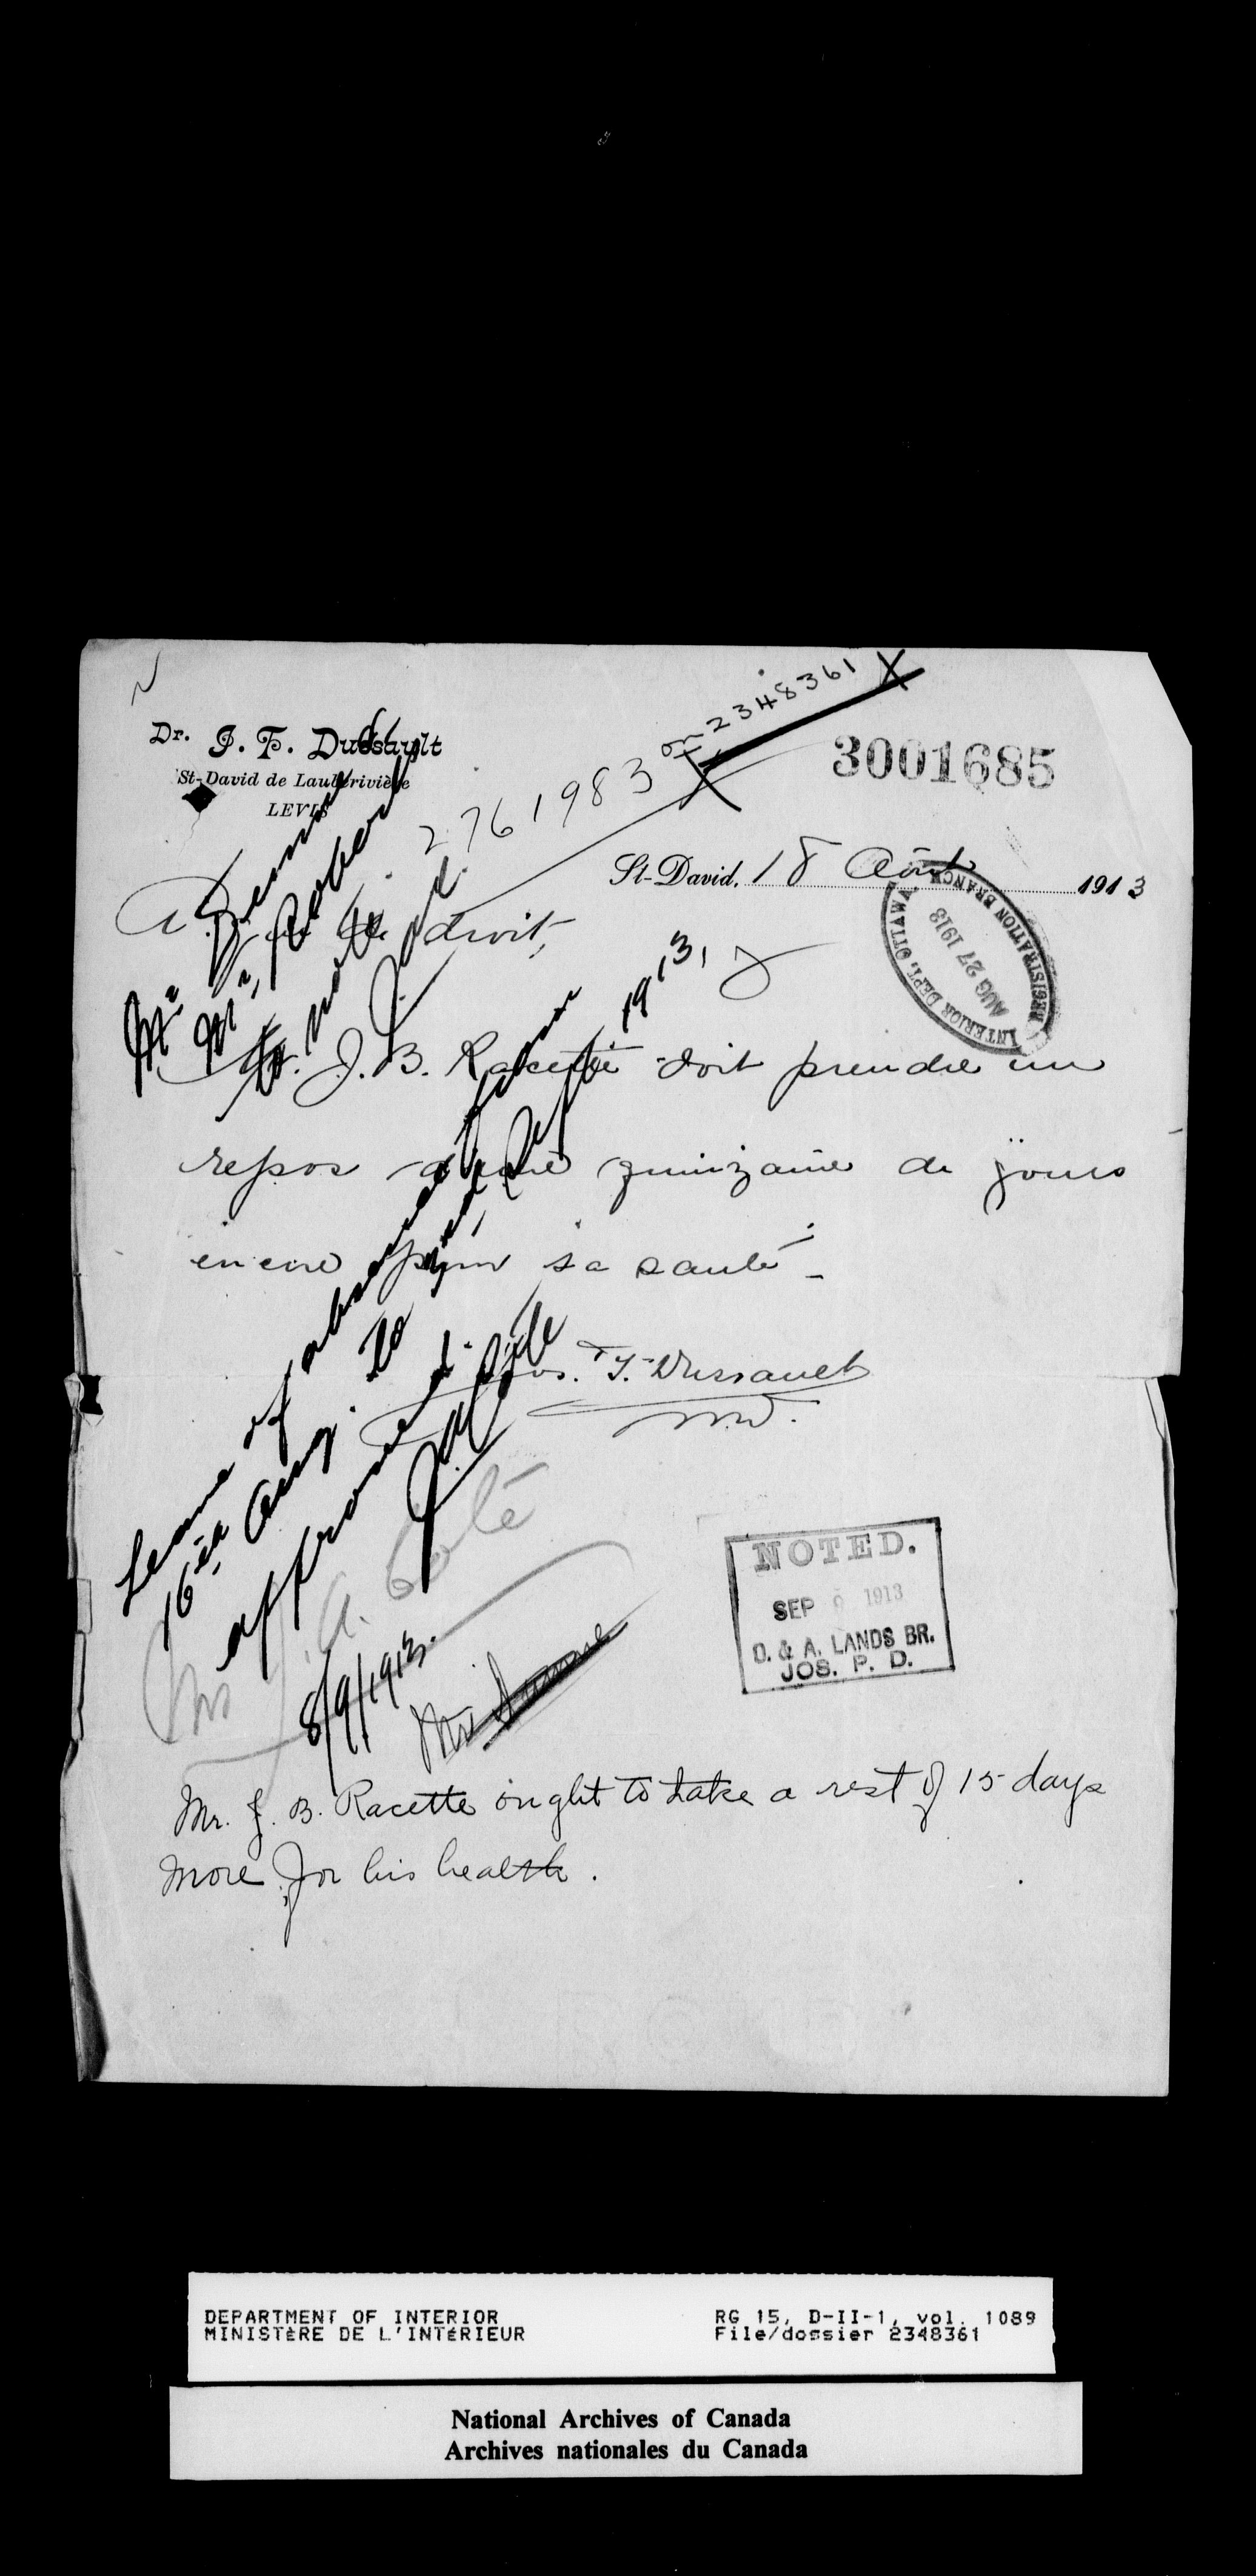 on 2348361 X
Dr. J. F. Dussault
St-David de Lauberivière
LEVIS
3001685
2761983
St-David, 18 Août 1913
INTERIOR DEPT. OTTAWA
AUG 27 1913
REGISTRATION BRANCH
A qui de droit,
Mr.
Mr. Robert
to note
M. J. B. Racette doit prendre un
repos d'une quinzaine de jours
encore pour sa santé -
Jos. F. Dussault
M.D.
Leave of absence from
16th Aug. to 2nd Sept. 1913,
approved.
J. A. Côté
8/9/1913.
Mr J. A. Coté
Mr
NOTED.
SEP 9 1913
O. & A. LANDS BR.
JOS. P. D.
Mr. J. B. Racette ought to take a rest of 15 days
more for his health.
DEPARTMENT OF INTERIOR
MINISTÈRE DE L'INTÉRIEUR
RG 15, D-II-1, vol. 1089
File/dossier 2348361
National Archives of Canada
Archives nationales du Canada